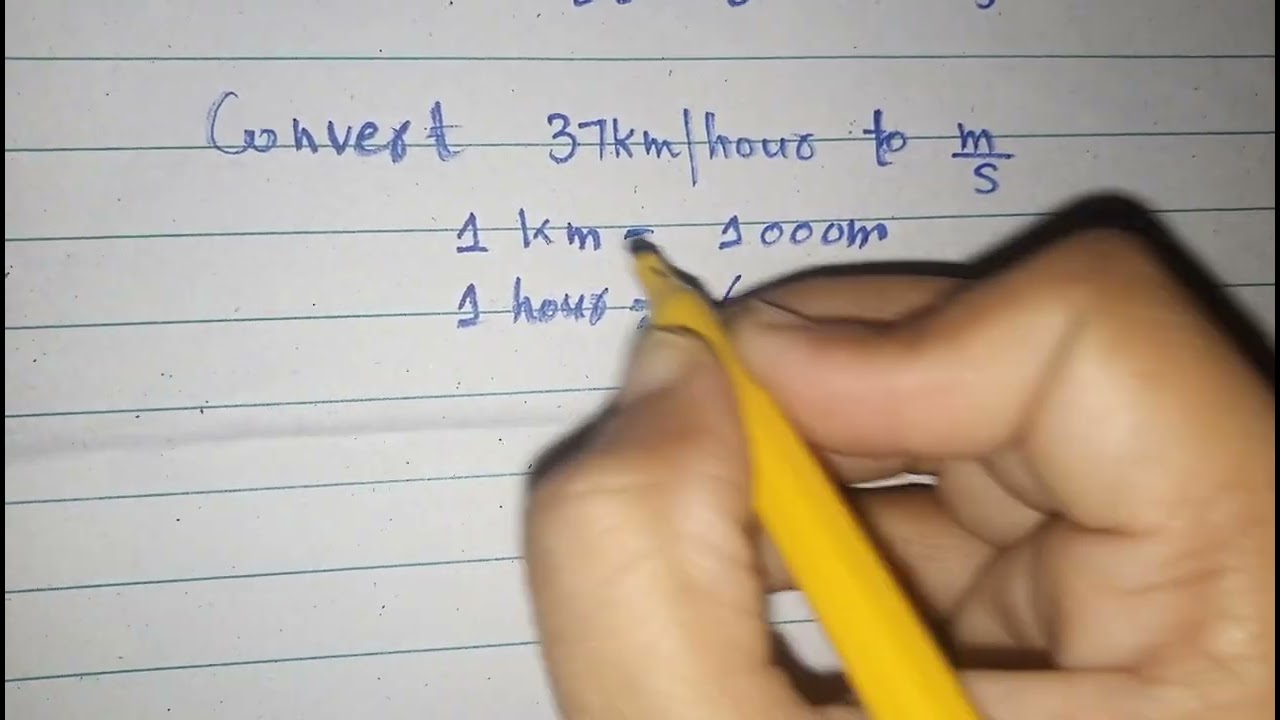 Convert 37km/hour to m/s
1 km = 1000m
1 hour =